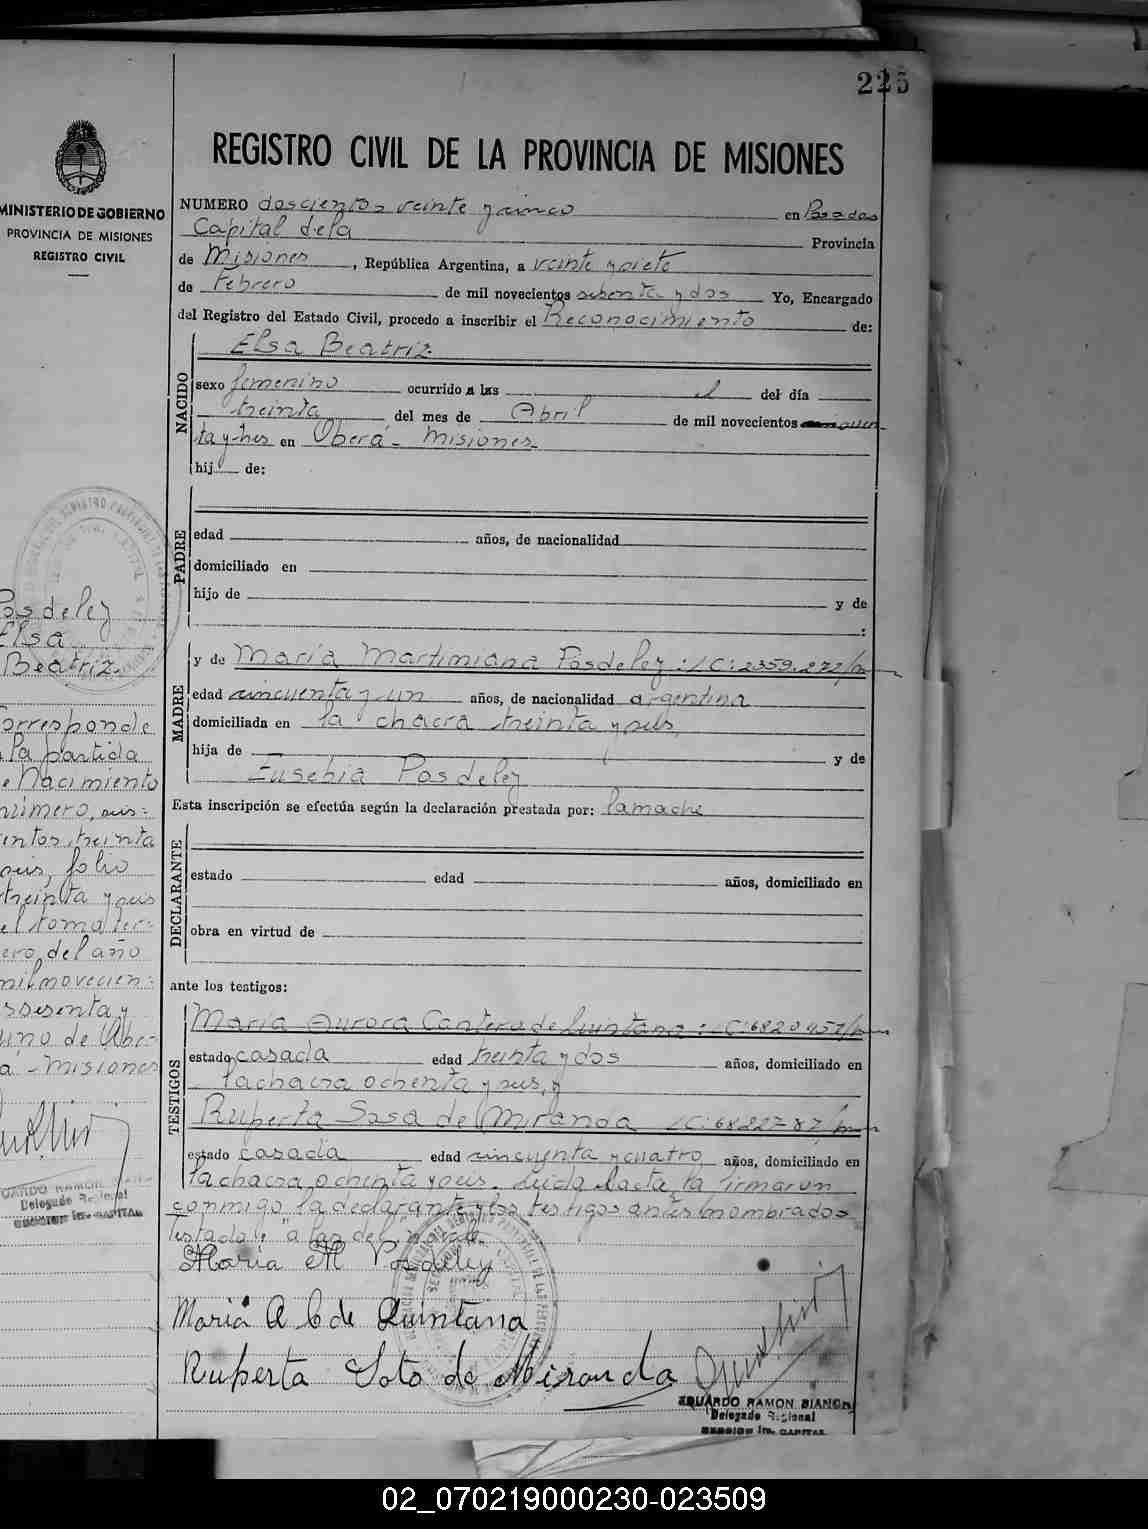 225
MINISTERIO DE GOBIERNO
PROVINCIA DE MISIONES
REGISTRO CIVIL
Posdeley
Elsa
Beatriz.
Corresponde
a la partida
de Nacimiento
número, seis=
cientos, treinta
y seis, folio
treinta y seis
del tomo ter=
cero, del año
mil novecien=
sesenta y
uno de Ober-
á - Misiones
Delegado Regional
CAPITAL
REGISTRO CIVIL DE LA PROVINCIA DE MISIONES
NUMERO doscientos veinte y cinco en Posadas
Capital dela Provincia
de Misiones, República Argentina, a veinte y siete
de Febrero de mil novecientos setenta y dos Yo, Encargado
del Registro del Estado Civil, procedo a inscribir el Reconocimiento de:
NACIDO
Elsa Beatriz.
sexo femenino ocurrido a las el del día
treinta del mes de Abril de mil novecientos cincuen
ta y tres en Oberá - Misiones
hij de:
PADRE
edad años, de nacionalidad
domiciliado en
hijo de y de
:
MADRE
y de María Martimiana Posdeley: C: 2359.272/m
edad cincuenta y un años, de nacionalidad argentina
domiciliada en la chacra treinta y seis,
hija de y de
Eusebia Posdeley
Esta inscripción se efectúa según la declaración prestada por: la madre
DECLARANTE
estado edad años, domiciliado en
obra en virtud de
ante los testigos:
TESTIGOS
María Aurora Cantero de Quintana: C:
estado casada edad treinta y dos años, domiciliado en
la chacra ochenta y seis, y
Ruperta Sosa de Miranda C:
estado casada edad cincuenta y cuatro años, domiciliado en
la chacra ochenta y seis. Leida el acta, la firmaron
conmigo la declarante y los testigos antes nombrados
Testado: "a las del
María M Posdeley
María A C de Quintana
Ruperta Soto de Miranda
EDUARDO RAMON BIANCHI
Delegado Regional
CAPITAL
02_070219000230-023509